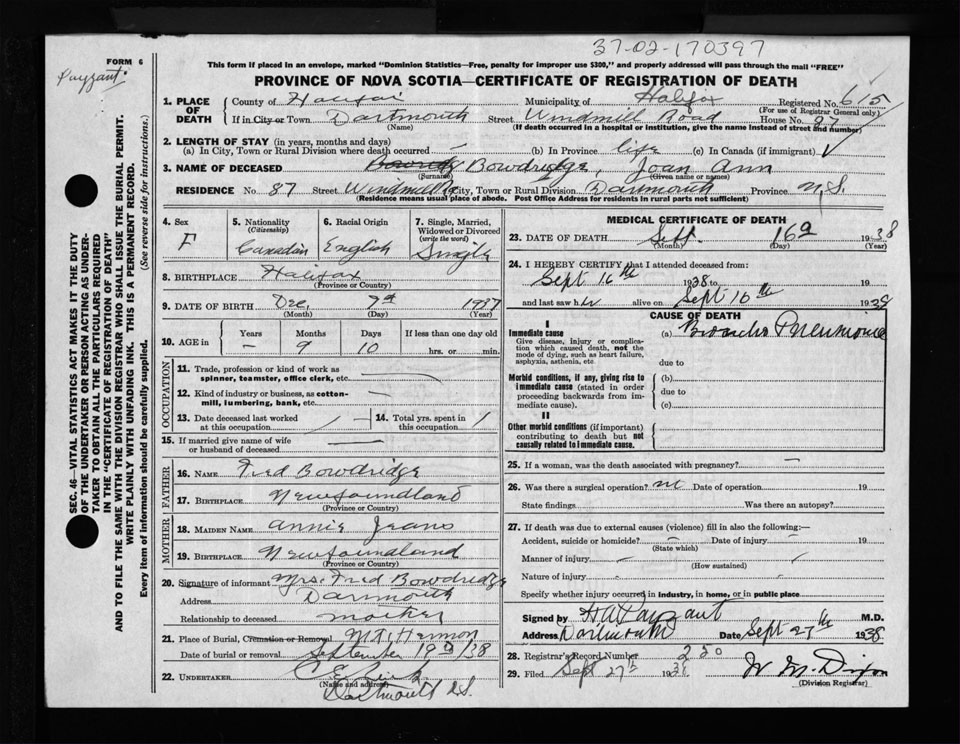 37-02-170397
FORM 6
Payzant
This form if placed in an envelope, marked "Dominion Statistics—Free, penalty for improper use $300," and properly addressed will pass through the mail "FREE"
PROVINCE OF NOVA SCOTIA—CERTIFICATE OF REGISTRATION OF DEATH
SEC. 46—VITAL STATISTICS ACT MAKES IT THE DUTY
OF THE UNDERTAKER OR PERSON ACTING AS UNDER-
TAKER TO OBTAIN ALL THE PARTICULARS REQUIRED
IN THE "CERTIFICATE OF REGISTRATION OF DEATH"
AND TO FILE THE SAME WITH THE DIVISION REGISTRAR WHO SHALL ISSUE THE BURIAL PERMIT.
WRITE PLAINLY WITH UNFADING INK. THIS IS A PERMANENT RECORD.
Every item of information should be carefully supplied. (See reverse side for instructions.)
1. PLACE OF DEATH County of Halifax Municipality of Halifax Registered No. 615
(For use of Registrar General only)
If in City or Town Dartmouth Street Windmill Road House No. 87
(Name) (If death occurred in a hospital or institution, give the name instead of street and number)
2. LENGTH OF STAY (in years, months and days)
(a) In City, Town or Rural Division where death occurred — (b) In Province life (c) In Canada (if immigrant)
3. NAME OF DECEASED Bowdridge, Joan Ann
(Surname) (Given name or names)
RESIDENCE No. 87 Street Windmill City, Town or Rural Division Dartmouth Province N.S.
(Residence means usual place of abode. Post Office Address for residents in rural parts not sufficient)
4. Sex F
5. Nationality (Citizenship) Canadian
6. Racial Origin English
7. Single, Married, Widowed or Divorced (write the word) Single
8. BIRTHPLACE Halifax
(Province or Country)
9. DATE OF BIRTH Dec. 7th 1937
(Month) (Day) (Year)
10. AGE in Years — Months 9 Days 10 If less than one day old hrs. or min.
OCCUPATION
11. Trade, profession or kind of work as spinner, teamster, office clerk, etc.
12. Kind of industry or business, as cotton-mill, lumbering, bank, etc.
13. Date deceased last worked at this occupation
14. Total yrs. spent in this occupation
15. If married give name of wife or husband of deceased
FATHER
16. NAME Fred Bowdridge
17. BIRTHPLACE Newfoundland
(Province or Country)
MOTHER
18. MAIDEN NAME Annie Jeans
19. BIRTHPLACE Newfoundland
(Province or Country)
20. Signature of informant Mrs. Fred Bowdridge
Address Dartmouth
Relationship to deceased mother
21. Place of Burial, Cremation or Removal Mt. Hermon
Date of burial or removal September 19th/38
22. UNDERTAKER
(Name and address)
Dartmouth N.S.
MEDICAL CERTIFICATE OF DEATH
23. DATE OF DEATH Sept. 16th 1938
(Month) (Day) (Year)
24. I HEREBY CERTIFY that I attended deceased from:
Sept 16th 1938 to 19
and last saw her alive on Sept 16th 1938
CAUSE OF DEATH
I
Immediate cause (a) Broncho Pneumonia
Give disease, injury or complication which caused death, not the mode of dying, such as heart failure, asphyxia, asthenia, etc.
due to
Morbid conditions, if any, giving rise to immediate cause (stated in order proceeding backwards from immediate cause).
(b)
due to
(c)
II
Other morbid conditions (if important) contributing to death but not causally related to immediate cause.
25. If a woman, was the death associated with pregnancy? —
26. Was there a surgical operation? no Date of operation 19
State findings Was there an autopsy?
27. If death was due to external causes (violence) fill in also the following:—
Accident, suicide or homicide? — Date of injury — 19
(State which)
Manner of injury —
(How sustained)
Nature of injury
Specify whether injury occurred in industry, in home, or in public place
Signed by H A Payzant M.D.
Address Dartmouth Date Sept 27th 1938
28. Registrar's Record Number 220
29. Filed Sept 27th 1938
(Division Registrar)